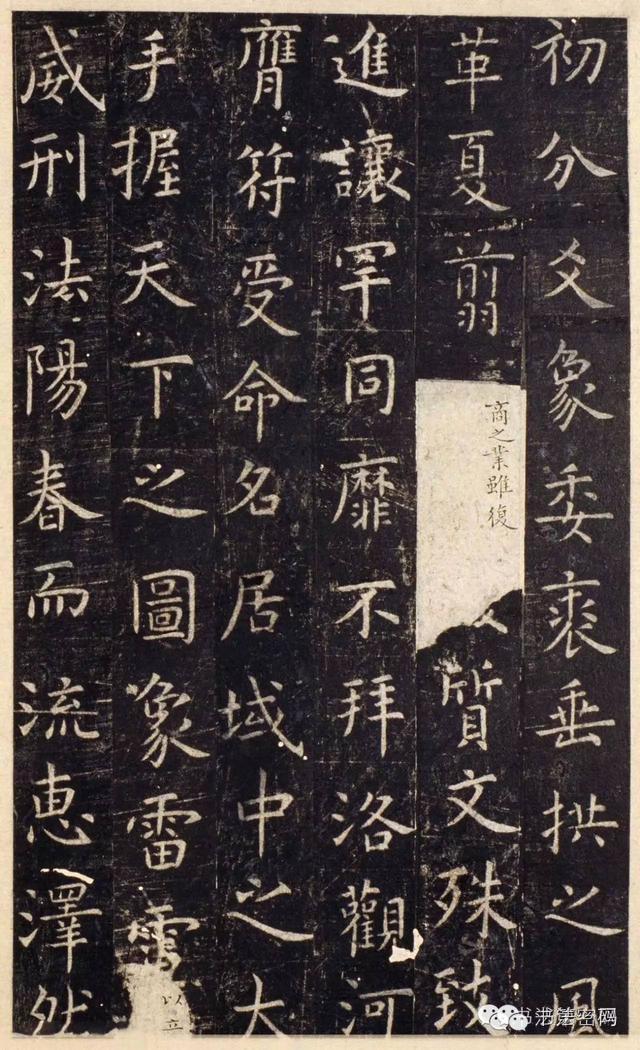 初分爻象委裘垂拱之風
革夏翦商之業雖復質文殊致
進讓罕同靡不拜洛觀河
膺符受命名居域中之大
手握天下之圖象雷電以立
威刑法陽春而流恵澤然
书法密码